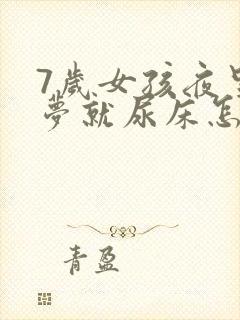 7歲女孩夜里
夢就尿床怎
青盈